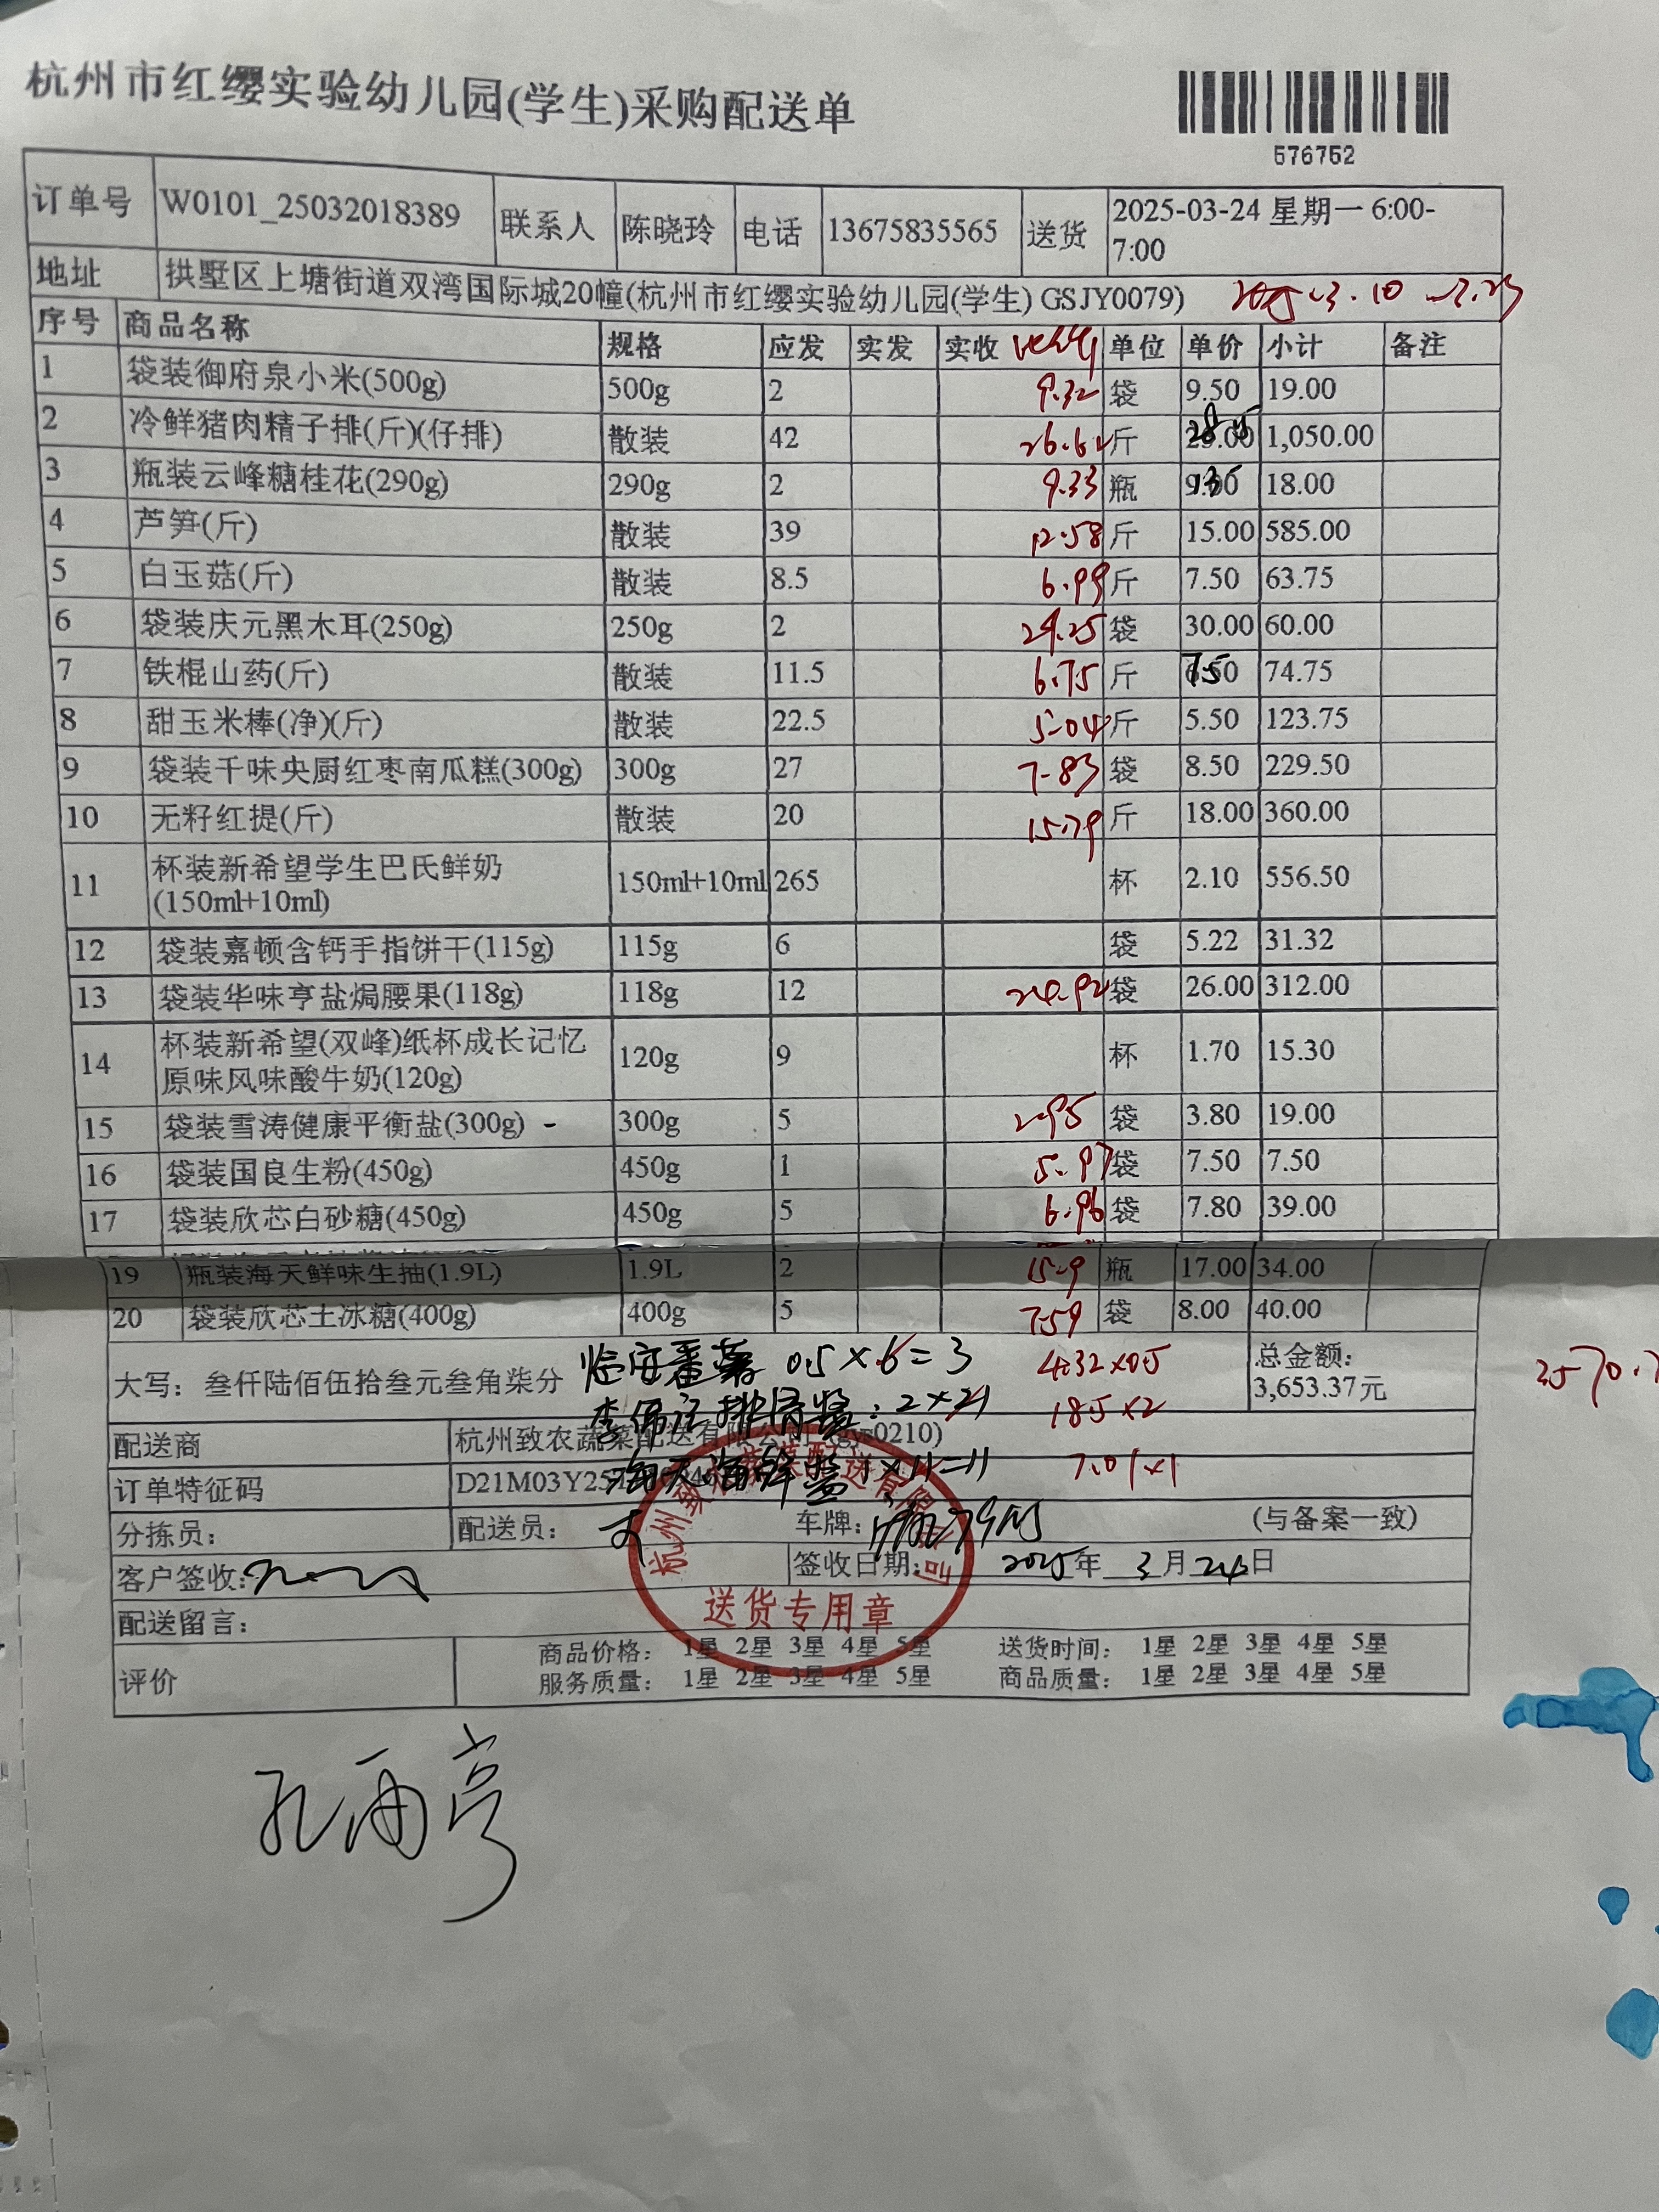 杭州市红缨实验幼儿园(学生)采购配送单
576752
订单号 W0101_25032018389 联系人 陈晓玲 电话 13675835565 送货 2025-03-24 星期一 6:00-7:00
地址 拱墅区上塘街道双湾国际城20幢(杭州市红缨实验幼儿园(学生) GSJY0079)
序号 商品名称 规格 应发 实发 实收 单位 单价 小计 备注
1 袋装御府泉小米(500g) 500g 2 9.32 袋 9.50 19.00
2 冷鲜猪肉精子排(斤)(仔排) 散装 42 26.62 斤 25.00 28.5 1,050.00
3 瓶装云峰糖桂花(290g) 290g 2 9.33 瓶 9.00 18.00
4 芦笋(斤) 散装 39 12.58 斤 15.00 585.00
5 白玉菇(斤) 散装 8.5 6.99 斤 7.50 63.75
6 袋装庆元黑木耳(250g) 250g 2 29.25 袋 30.00 60.00
7 铁棍山药(斤) 散装 11.5 6.75 斤 6.50 7.5 74.75
8 甜玉米棒(净)(斤) 散装 22.5 5.04 斤 5.50 123.75
9 袋装千味央厨红枣南瓜糕(300g) 300g 27 7.83 袋 8.50 229.50
10 无籽红提(斤) 散装 20 15.79 斤 18.00 360.00
11 杯装新希望学生巴氏鲜奶(150ml+10ml) 150ml+10ml 265 杯 2.10 556.50
12 袋装嘉顿含钙手指饼干(115g) 115g 6 袋 5.22 31.32
13 袋装华味亨盐焗腰果(118g) 118g 12 24.92 袋 26.00 312.00
14 杯装新希望(双峰)纸杯成长记忆原味风味酸牛奶(120g) 120g 9 杯 1.70 15.30
15 袋装雪涛健康平衡盐(300g) 300g 5 2.95 袋 3.80 19.00
16 袋装国良生粉(450g) 450g 1 5.97 袋 7.50 7.50
17 袋装欣芯白砂糖(450g) 450g 5 6.96 袋 7.80 39.00
19 瓶装海天鲜味生抽(1.9L) 1.9L 2 15.9 瓶 17.00 34.00
20 袋装欣芯土冰糖(400g) 400g 5 7.59 袋 8.00 40.00
大写：叁仟陆佰伍拾叁元叁角柒分 总金额：3,653.37元
临安番薯 0.5×6=3 4.32×0.5
李锦记排骨酱：2×21 18.5×2
海天海鲜酱 1×11=11 7.01×1
配送商 杭州致农蔬菜配送有限公司(gys0210)
订单特征码
分拣员： 配送员： 车牌： (与备案一致)
客户签收： 签收日期： 2025年 3月24日
配送留言：
评价 商品价格： 1星 2星 3星 4星 5星 送货时间： 1星 2星 3星 4星 5星
服务质量： 1星 2星 3星 4星 5星 商品质量： 1星 2星 3星 4星 5星
杭州致农蔬菜配送有限公司
送货专用章
孔雨亭